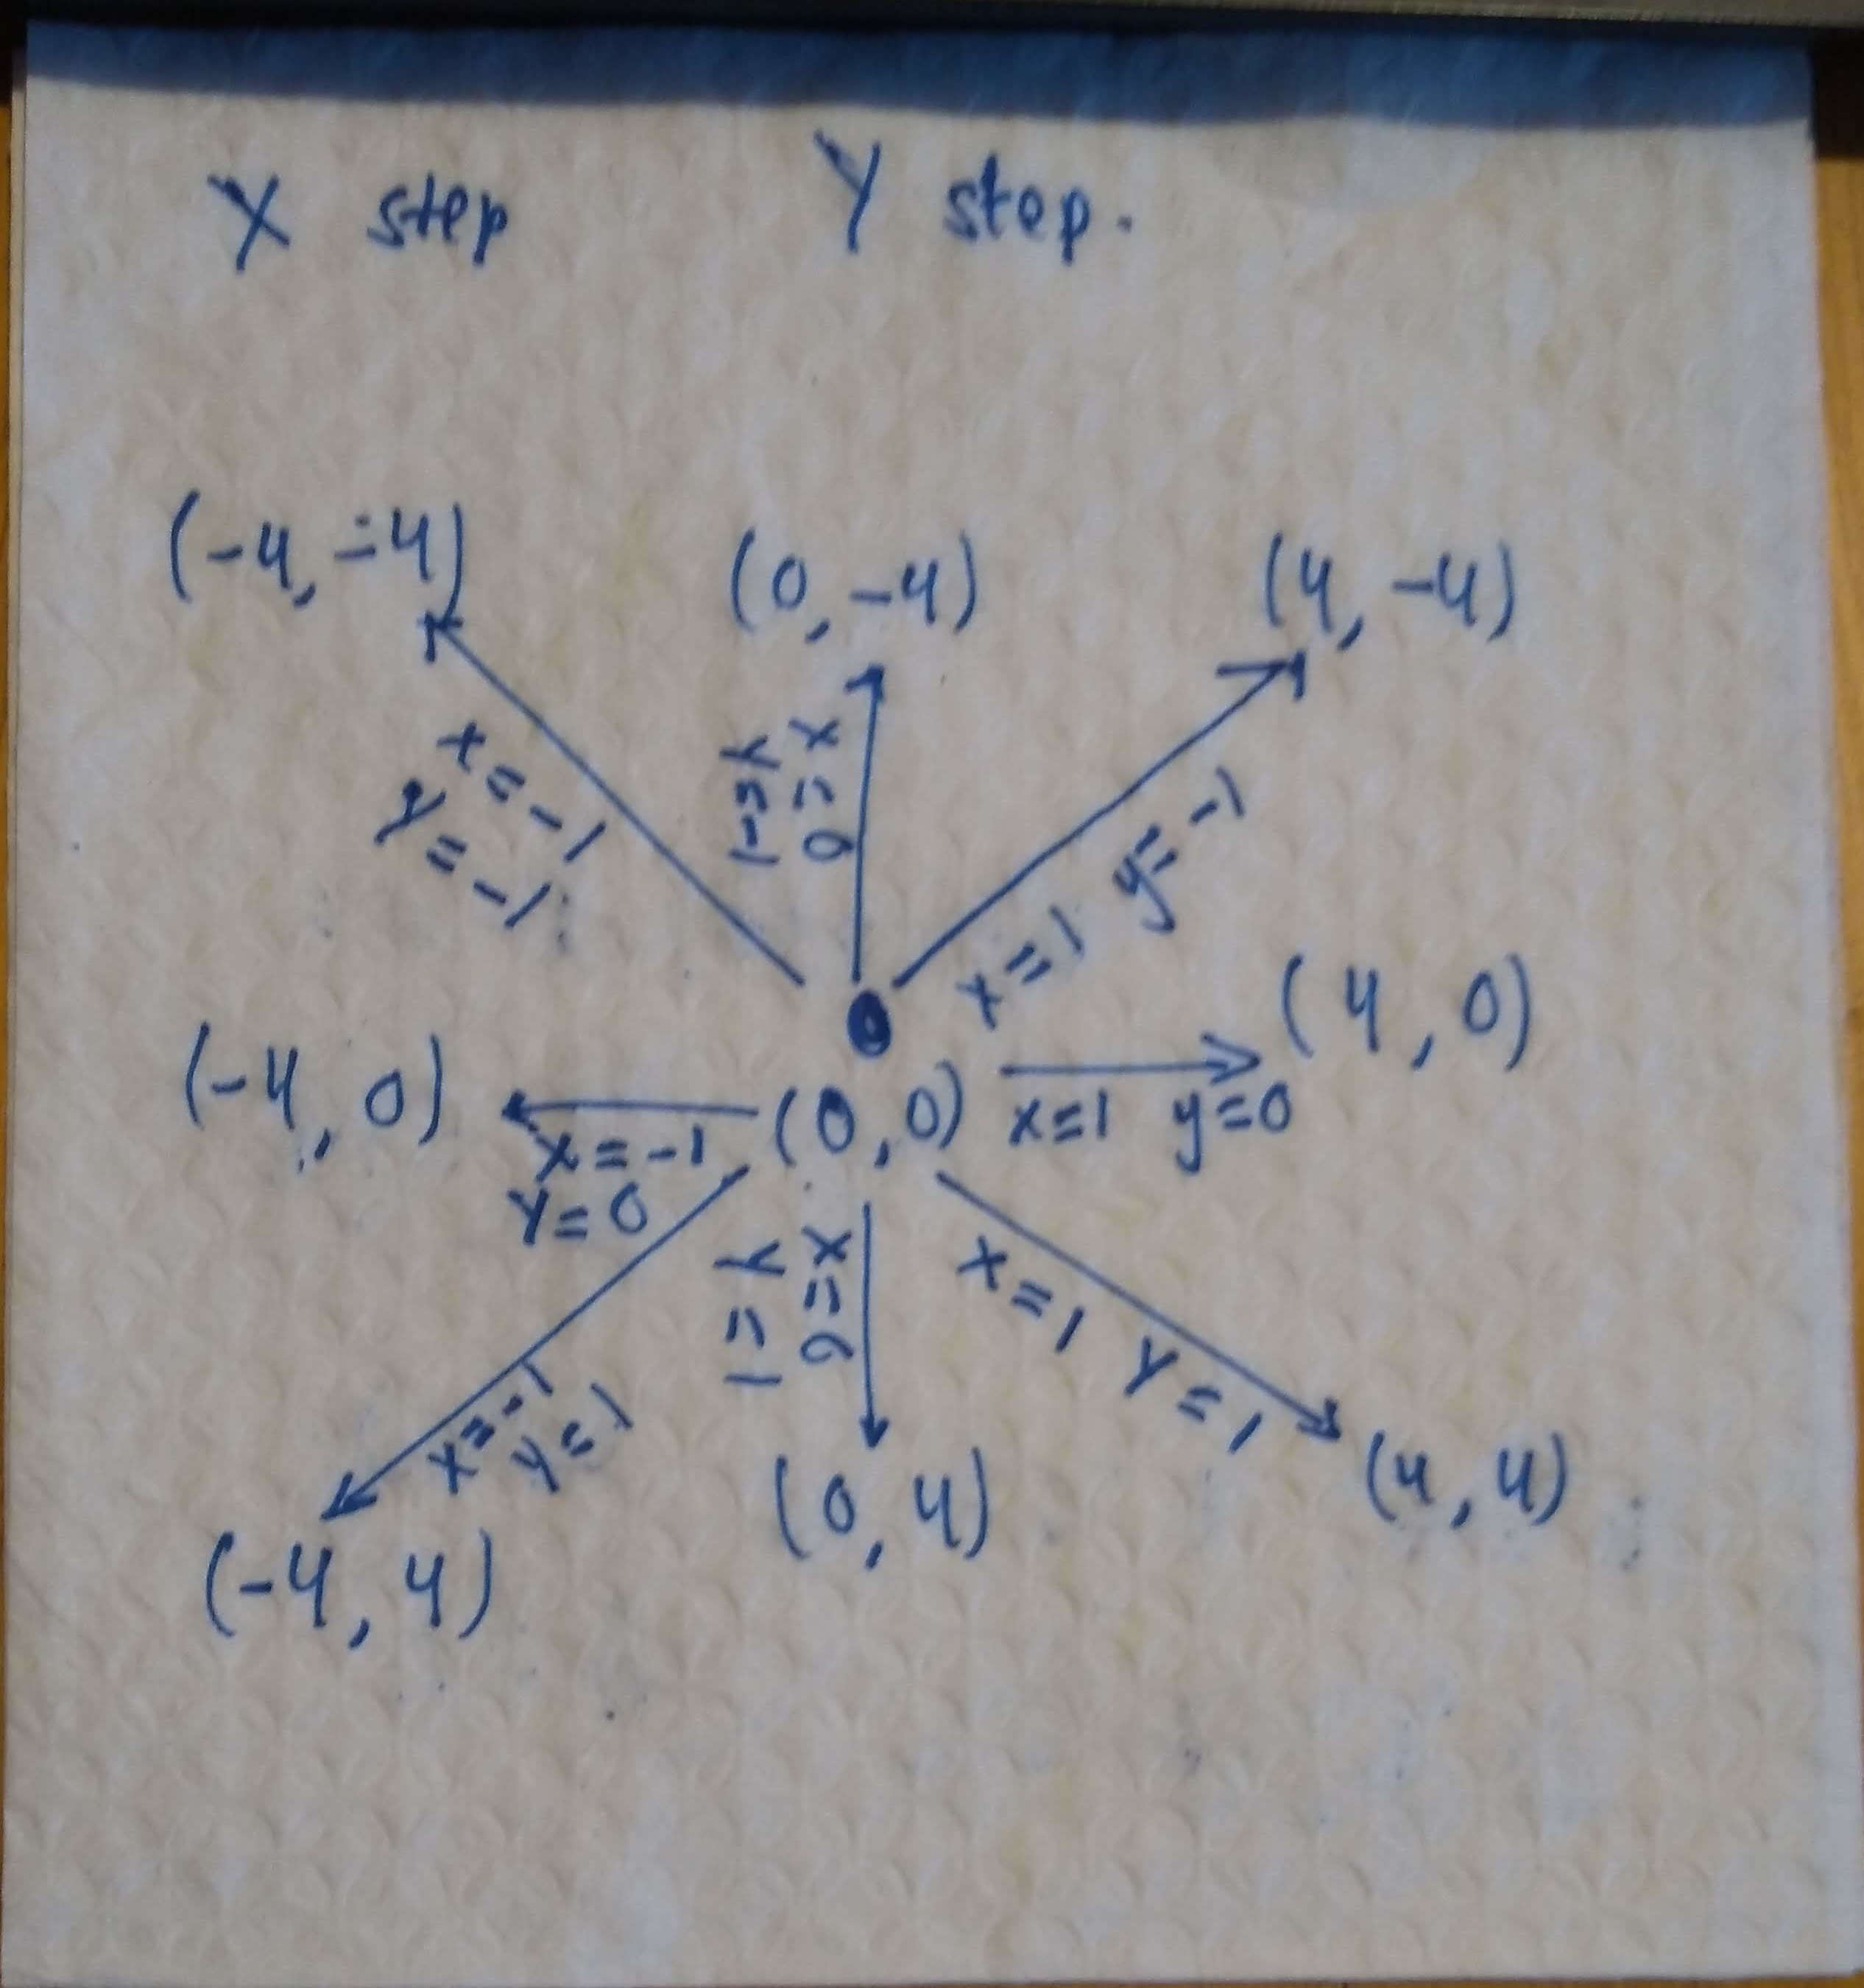 X step Y step.
(-4, -4) (0, -4) (4, -4)
x = -1
y = -1
Y=-1
X=0
x=1 y=-1
(4, 0)
(-4, 0)
(0,0)
x=1 y=0
x=-1
Y=0
Y=1
X=0
X=1 Y=1
x=-1
y=1
(-4, 4)
(0, 4)
(4, 4)